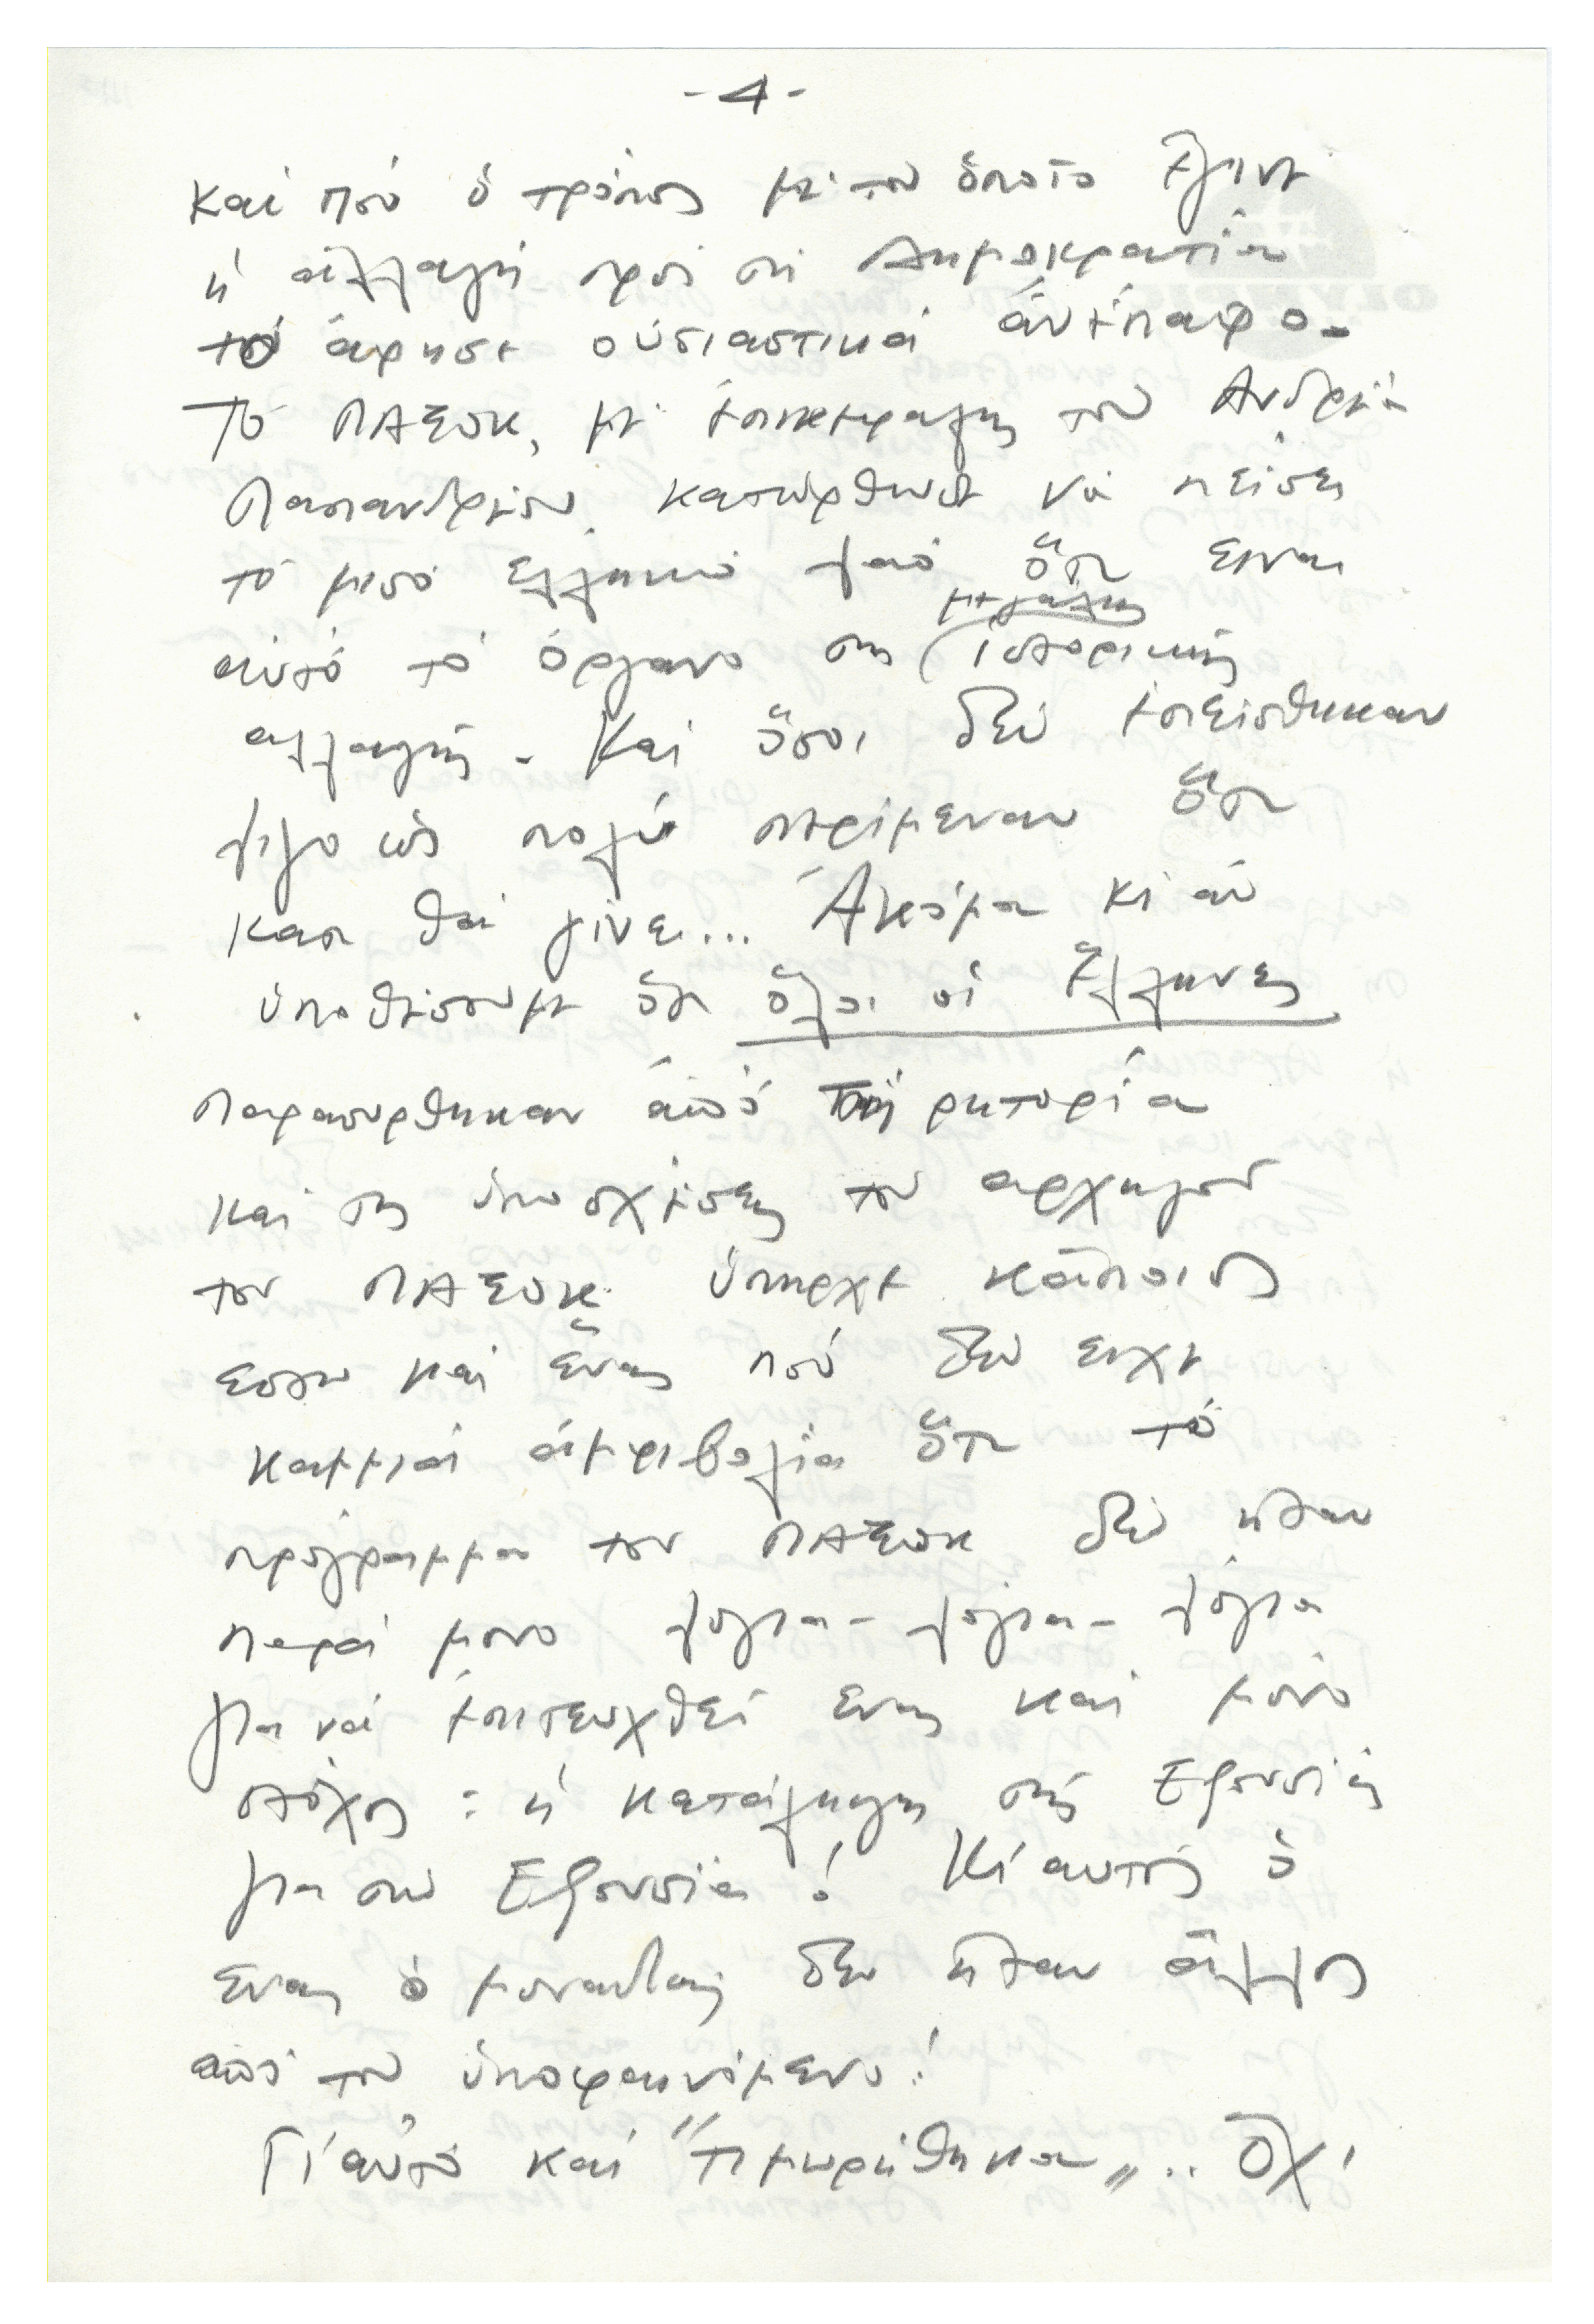 -4-
καί πού ὁ τρόπος μέ τον ὁποῖο ἔγινε
ἡ ἀλλαγή πρός τή Δημοκρατία
τό ἄφησε οὐσιαστικά ἀνέπαφο.
Τό ΠΑΣΟΚ, μέ ἐπικεφαλής τον Ανδρέα
Παπανδρέου, κατώρθωσε νά πείσει
τό μισό Ελληνικό λαό ὅτι ειναι
αὐτό τό όργανο της μεγάλης ἱστορικής
αλλαγής. Καί ὅσοι δέν ἐπείσθηκαν
λίγο ὡς πολύ περίμεναν ὅτι
κατι θά γίνει... Ἀκόμα κι ἀν
ὑποθέσουμε ὅτι ὅλοι οἱ Ἕλληνες
παρασυρθηκαν ἀπό τή ρητορία
καί τις ὑποσχέσεις του αρχηγού
του ΠΑΣΟΚ ὑπηρχε κάποιος
εστω καί ἕνας πού δέν ειχε
καμμιά ἀμφιβολία ὅτι τό
πρόγραμμα του ΠΑΣΟΚ δέν ηταν
παρά μονο λόγια - λόγια - λόγια
για νά ἐπιτευχθεί ενας καί μονο
στόχος : ἡ κατάληψη τής Εξουσίας
για την Εξουσία! Κι αυτός ὁ
ενας ὁ μοναδικός δεν ἠταν ἄλλος
από τον ὑποφαινόμενο!
Γι' αὐτό καί "τιμωρήθηκα".. Ὄχι